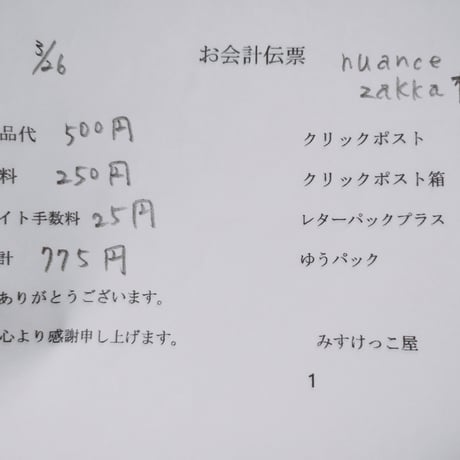 3/26 お会計伝票 nuance
zakka
品代 500円 クリックポスト
料 250円 クリックポスト箱
イト手数料 25円 レターパックプラス
計 775円 ゆうパック
ありがとうございます。
心より感謝申し上げます。 みすけっこ屋
1